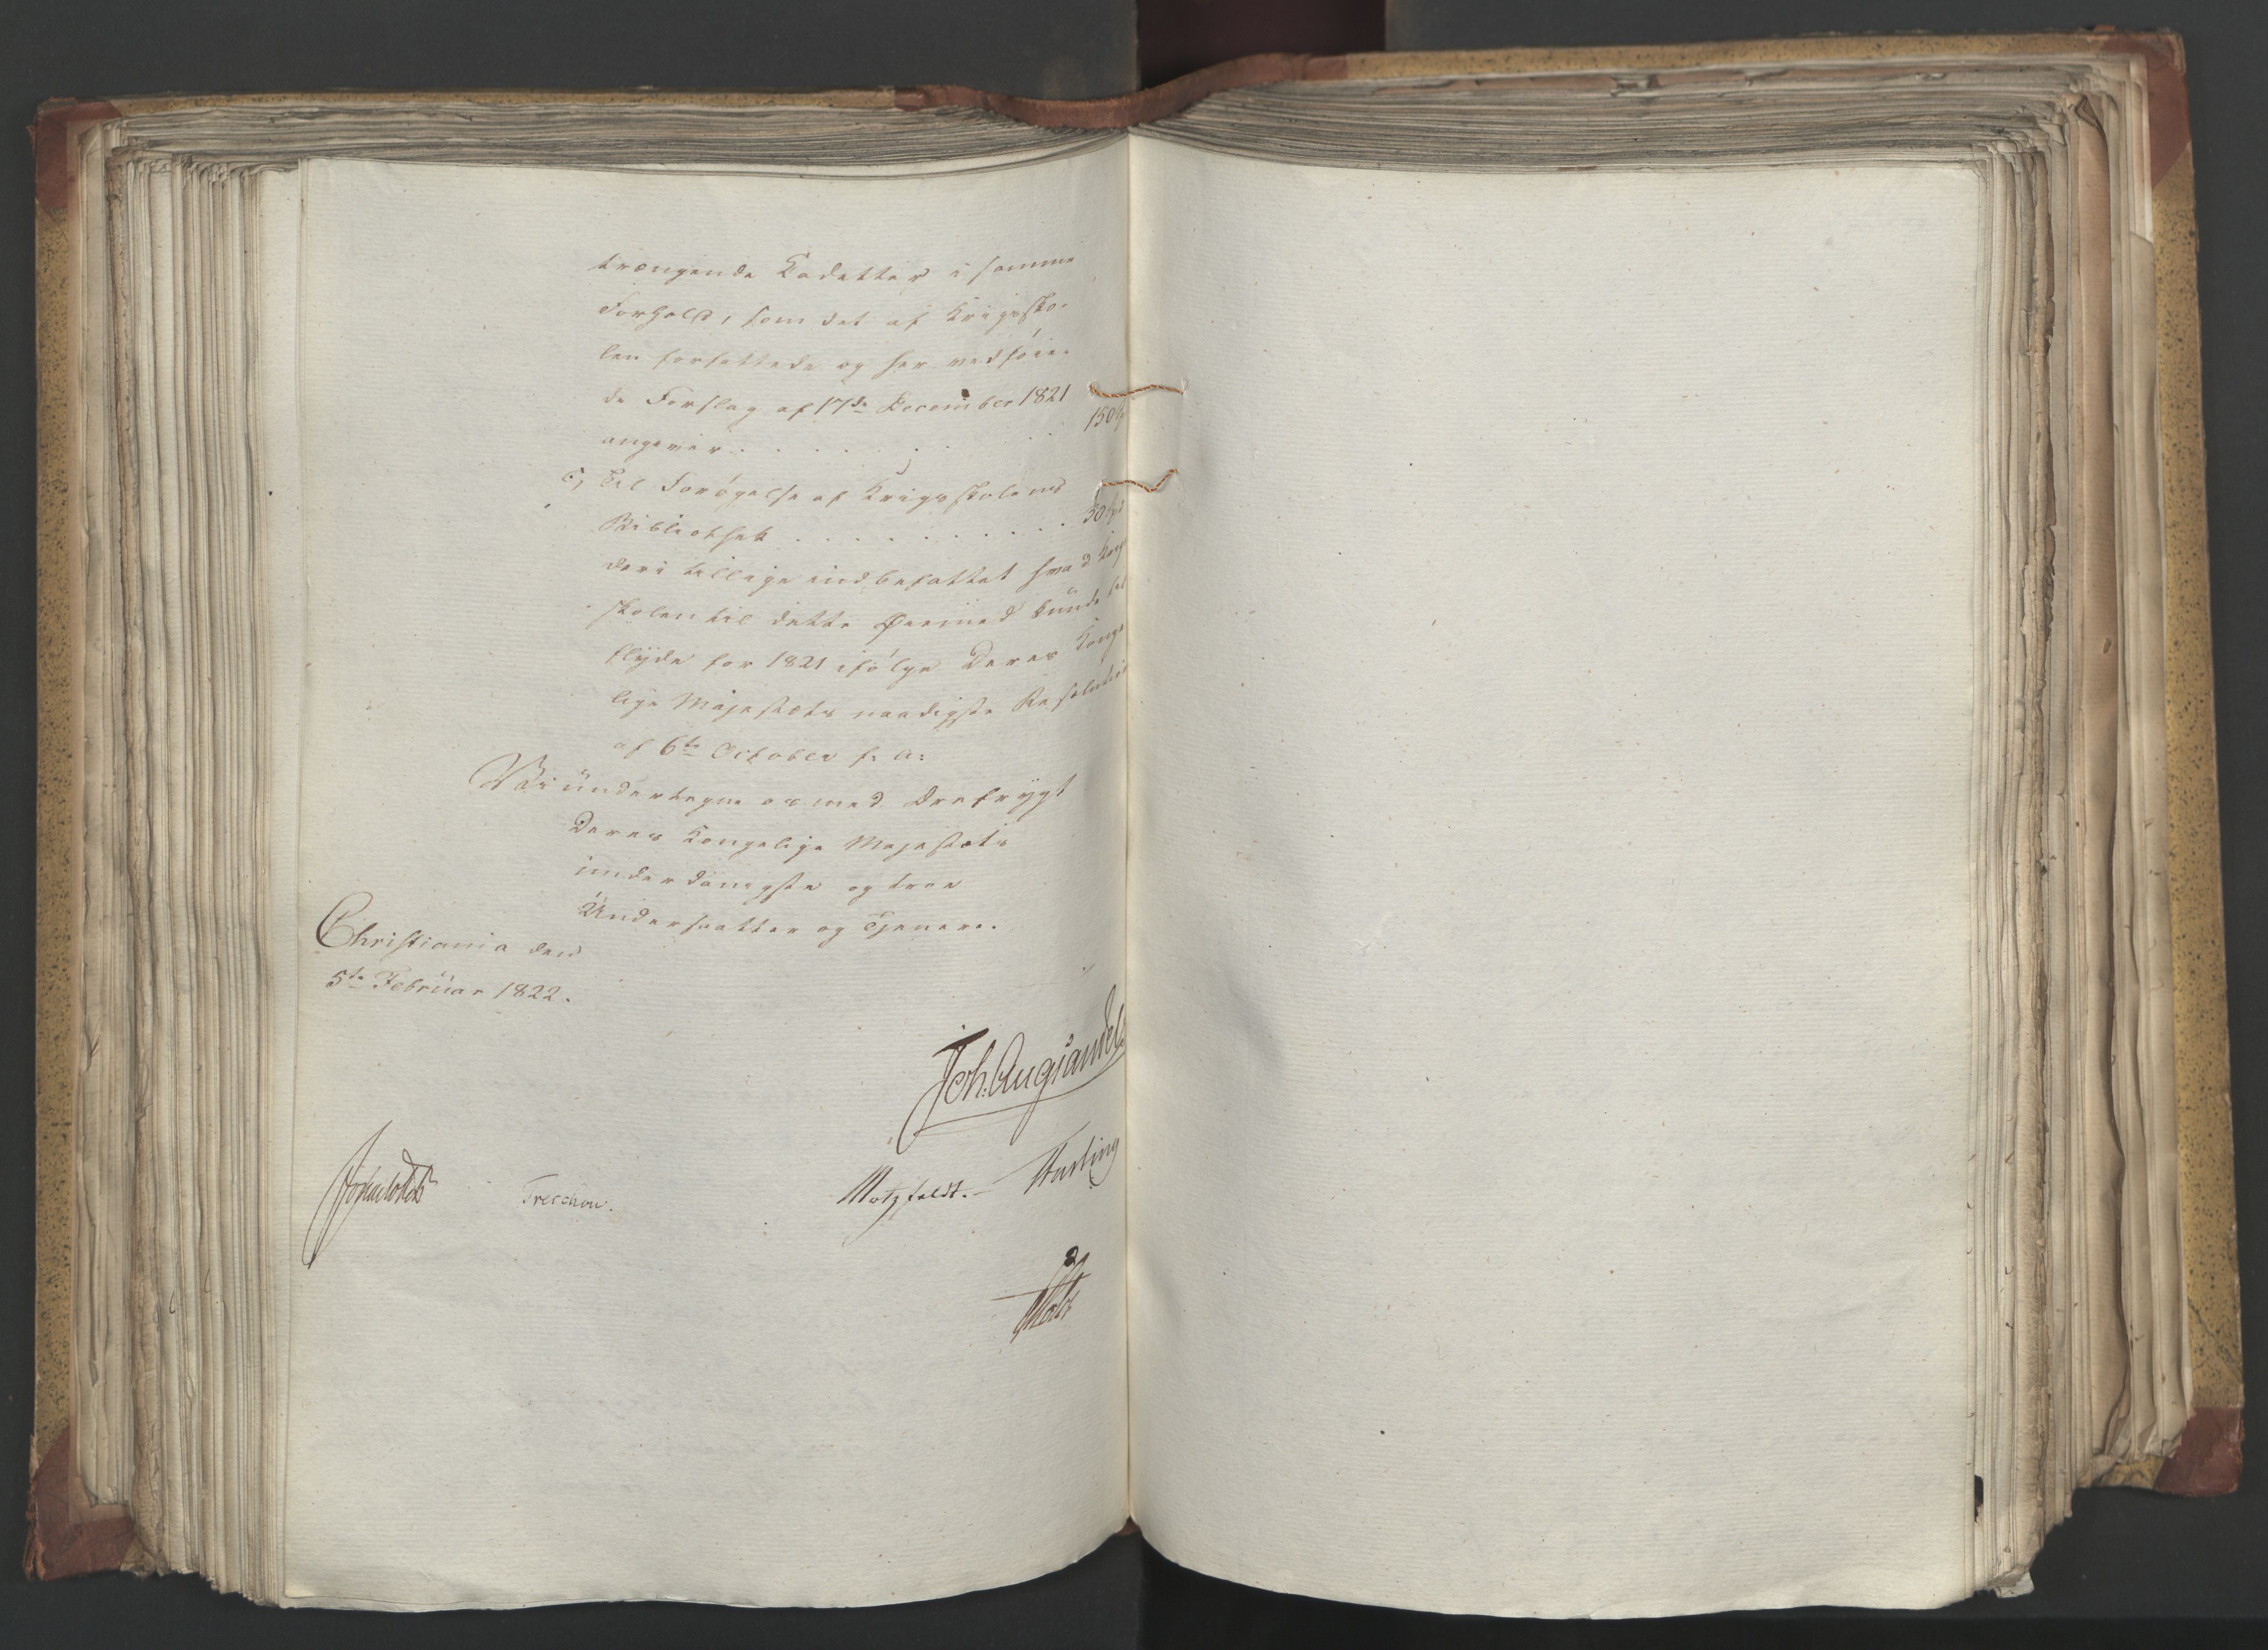 trængende Cadetter i samme
Forhold, som det af Krigssko-
len forfattede og her vedføie-
de Forslag af 17de December 1821
angiver . . . . . . . 150
c, Til Forøgelse af Krigsskolens
Bibliothek . . . . . . . . . . 50
deri tillige indbefattet hvad Krigs
skolen til dette Øiemed kunde til
flyde for 1821 ifølge Deres Konge
lige Majestæts naadigste Resolution
af 6te October f: A:
Vi undertegne os med Ærefrygt
Deres Kongelige Majestæts
underdanigste og troe
Undersaatter og Tjenere.
Christiania den
5te Februar 1822.
Joh. Aug Sandels
Sommerhielm Treschow. Motzfeldt. Fasting
Holst